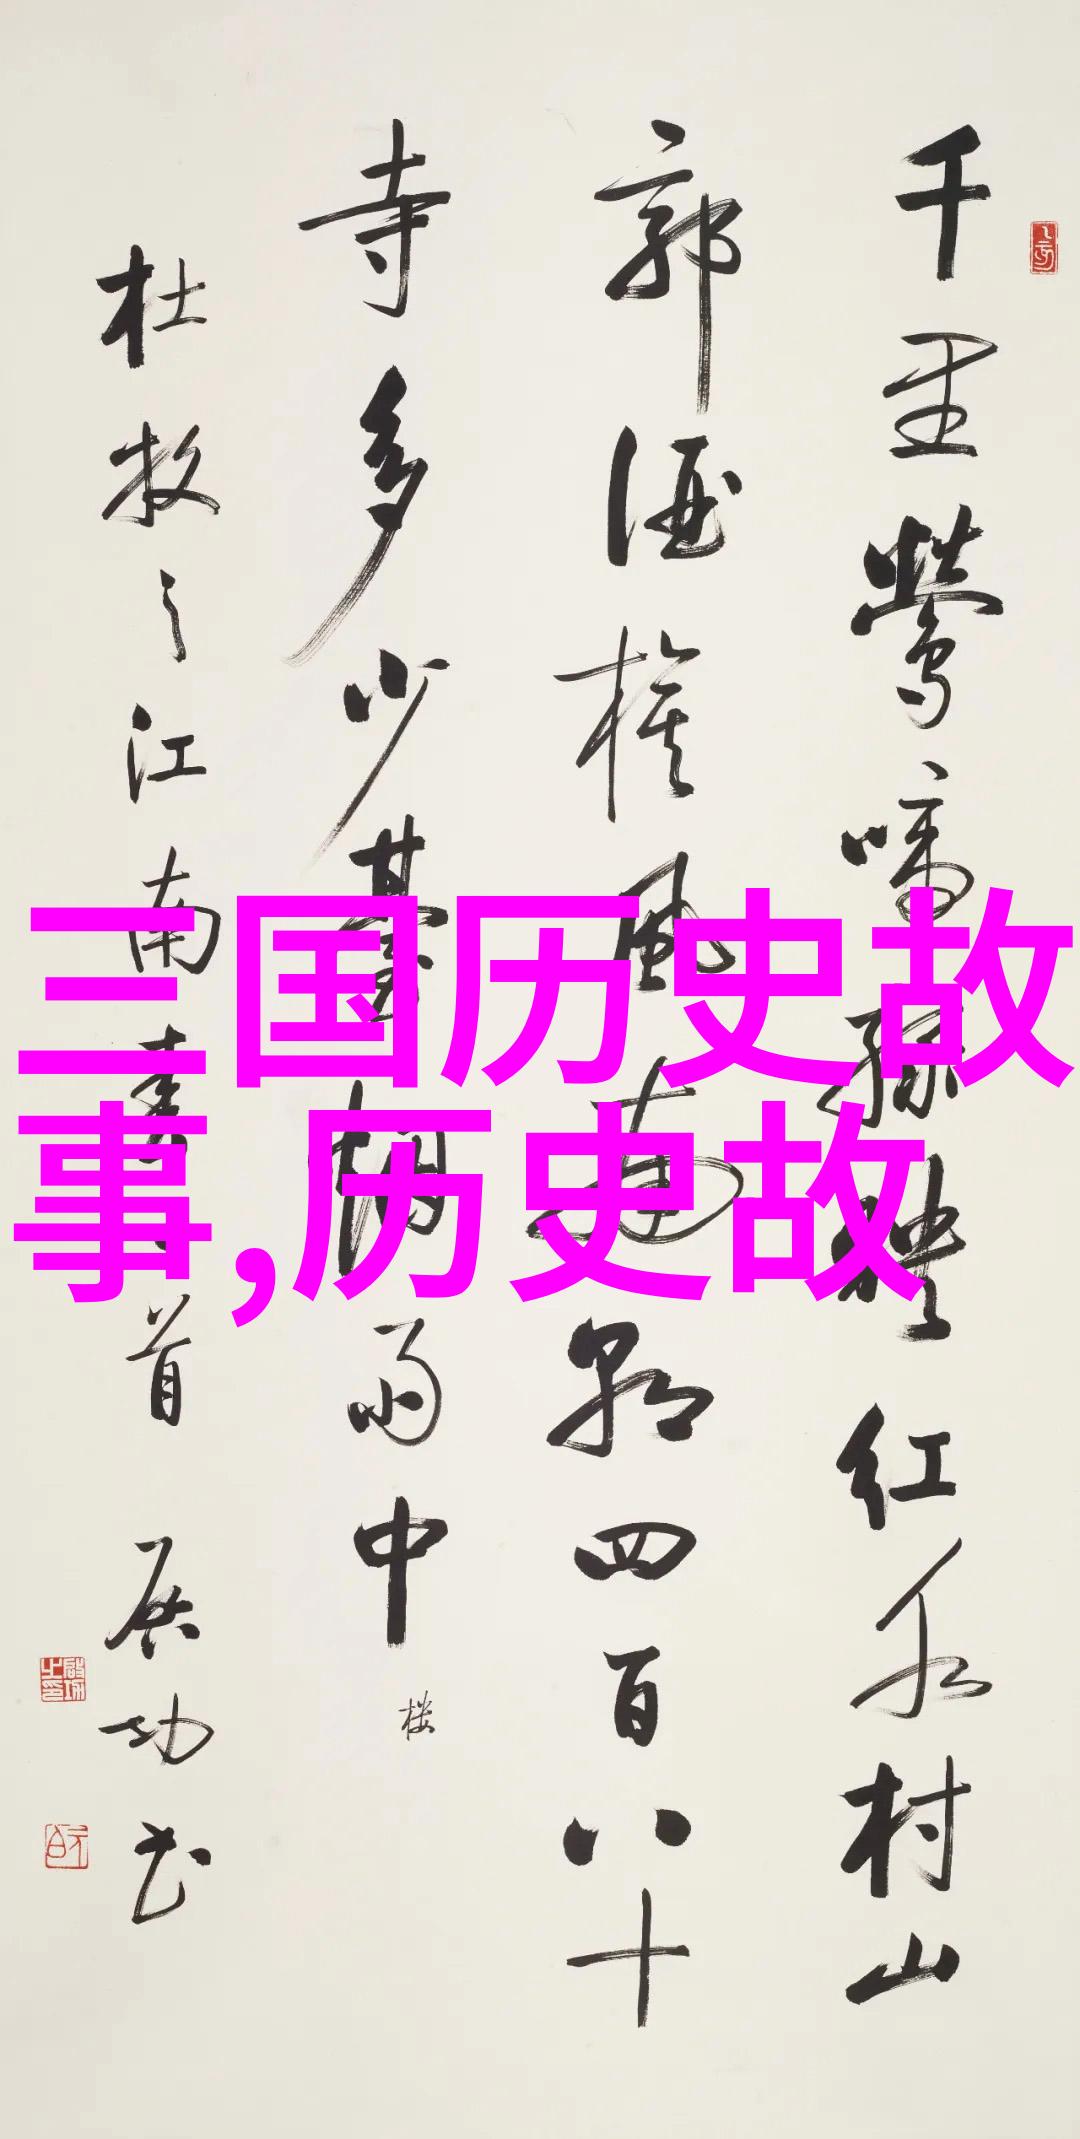 千里莺啼绿映红水村山
郭酒旗风南朝四百八十
寺多少台烟雨中
楼
杜牧之江南春一首 启功书
三国历史故
事,历史故